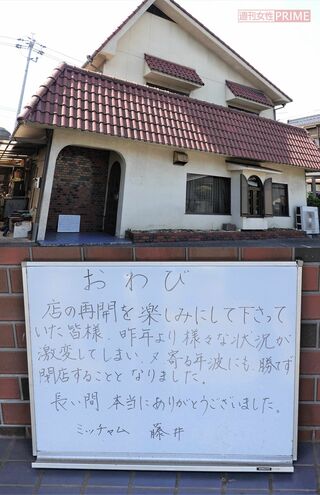 週刊女性PRIME
おわび
店の再開を楽しみにして下さって
いた皆様、昨年より様々な状況が
激変してしまい、又寄る年波にも勝てず
閉店することとなりました。
長い間 本当にありがとうございました。
ミッチャム 藤井